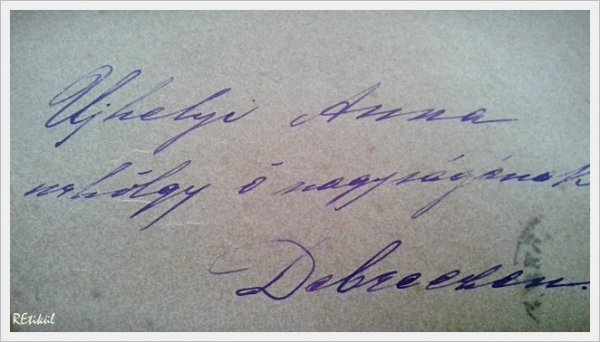 Ujhelyi Anna
urhölgy ő nagyságának
Debreczen.
REtikül